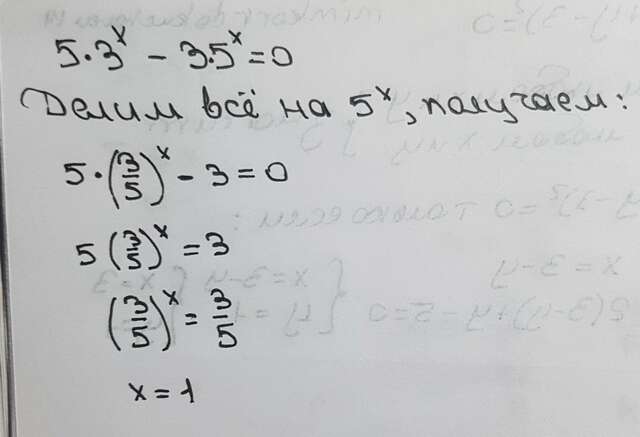 5·3^x − 3·5^x = 0
Делим всё на 5^x, получаем:
5·(3/5)^x − 3 = 0
5(3/5)^x = 3
(3/5)^x = 3/5
x = 1